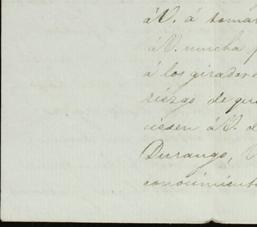 á V. á tomar
á V. mucha p
á los giradores
riezgo de que
ciesen á V. d
Durango,
conocimiento